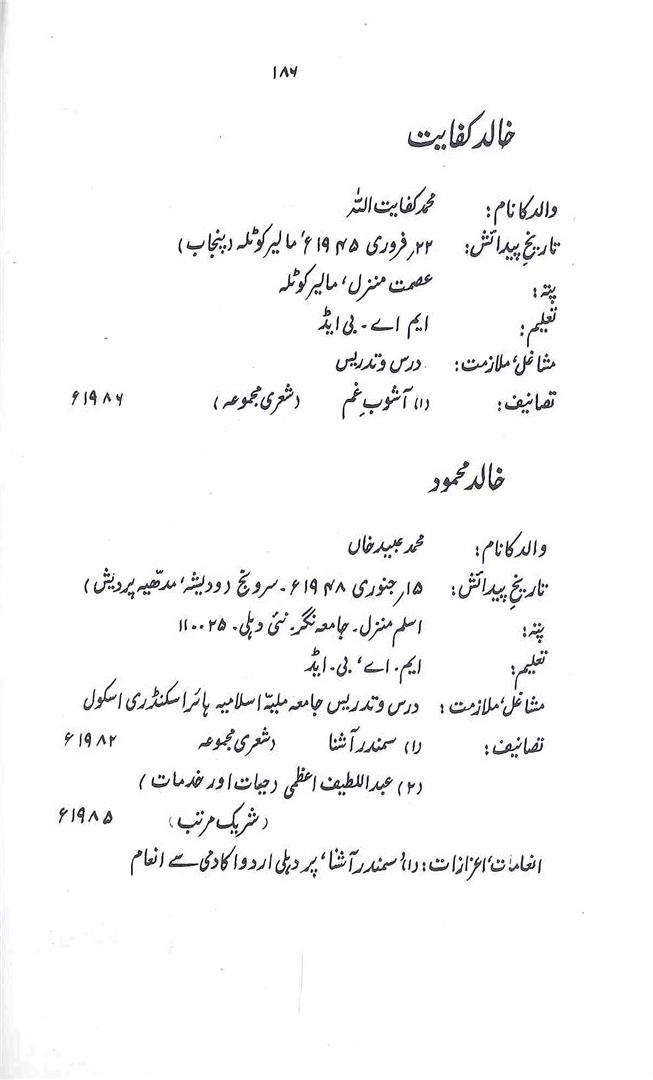 ۱۸۶
خالد کفایت
والد کا نام: محمد کفایت اللہ
تاریخِ پیدائش: ۲۲؍ فروری ۱۹۴۵ء، مالیر کوٹلہ (پنجاب)
پتہ: عصمت منزل، مالیر کوٹلہ
تعلیم: ایم اے۔ بی ایڈ
مشاغل، ملازمت: درس و تدریس
تصانیف: (۱) آشوبِ غم (شعری مجموعہ) ۱۹۸۶ء
خالد محمود
والد کا نام: محمد عبید خاں
تاریخِ پیدائش: ۱۵؍ جنوری ۱۹۴۸ء۔ سرونج (ودیشہ، مدھیہ پردیش)
پتہ: اسلم منزل۔ جامعہ نگر۔ نئی دہلی۔ ۱۱۰۰۲۵
تعلیم: ایم۔ اے، بی۔ ایڈ
مشاغل، ملازمت: درس و تدریس جامعہ ملیہ اسلامیہ ہائر اسکنڈری اسکول
تصانیف: (۱) سمندر آشنا (شعری مجموعہ ۱۹۸۲ء
(۲) عبداللطیف اعظمی (حیات اور خدمات)
(شریک مرتب) ۱۹۸۵ء
انعامات، اعزازات: (۱) 'سمندر آشنا' پر دہلی اردو اکادمی سے انعام